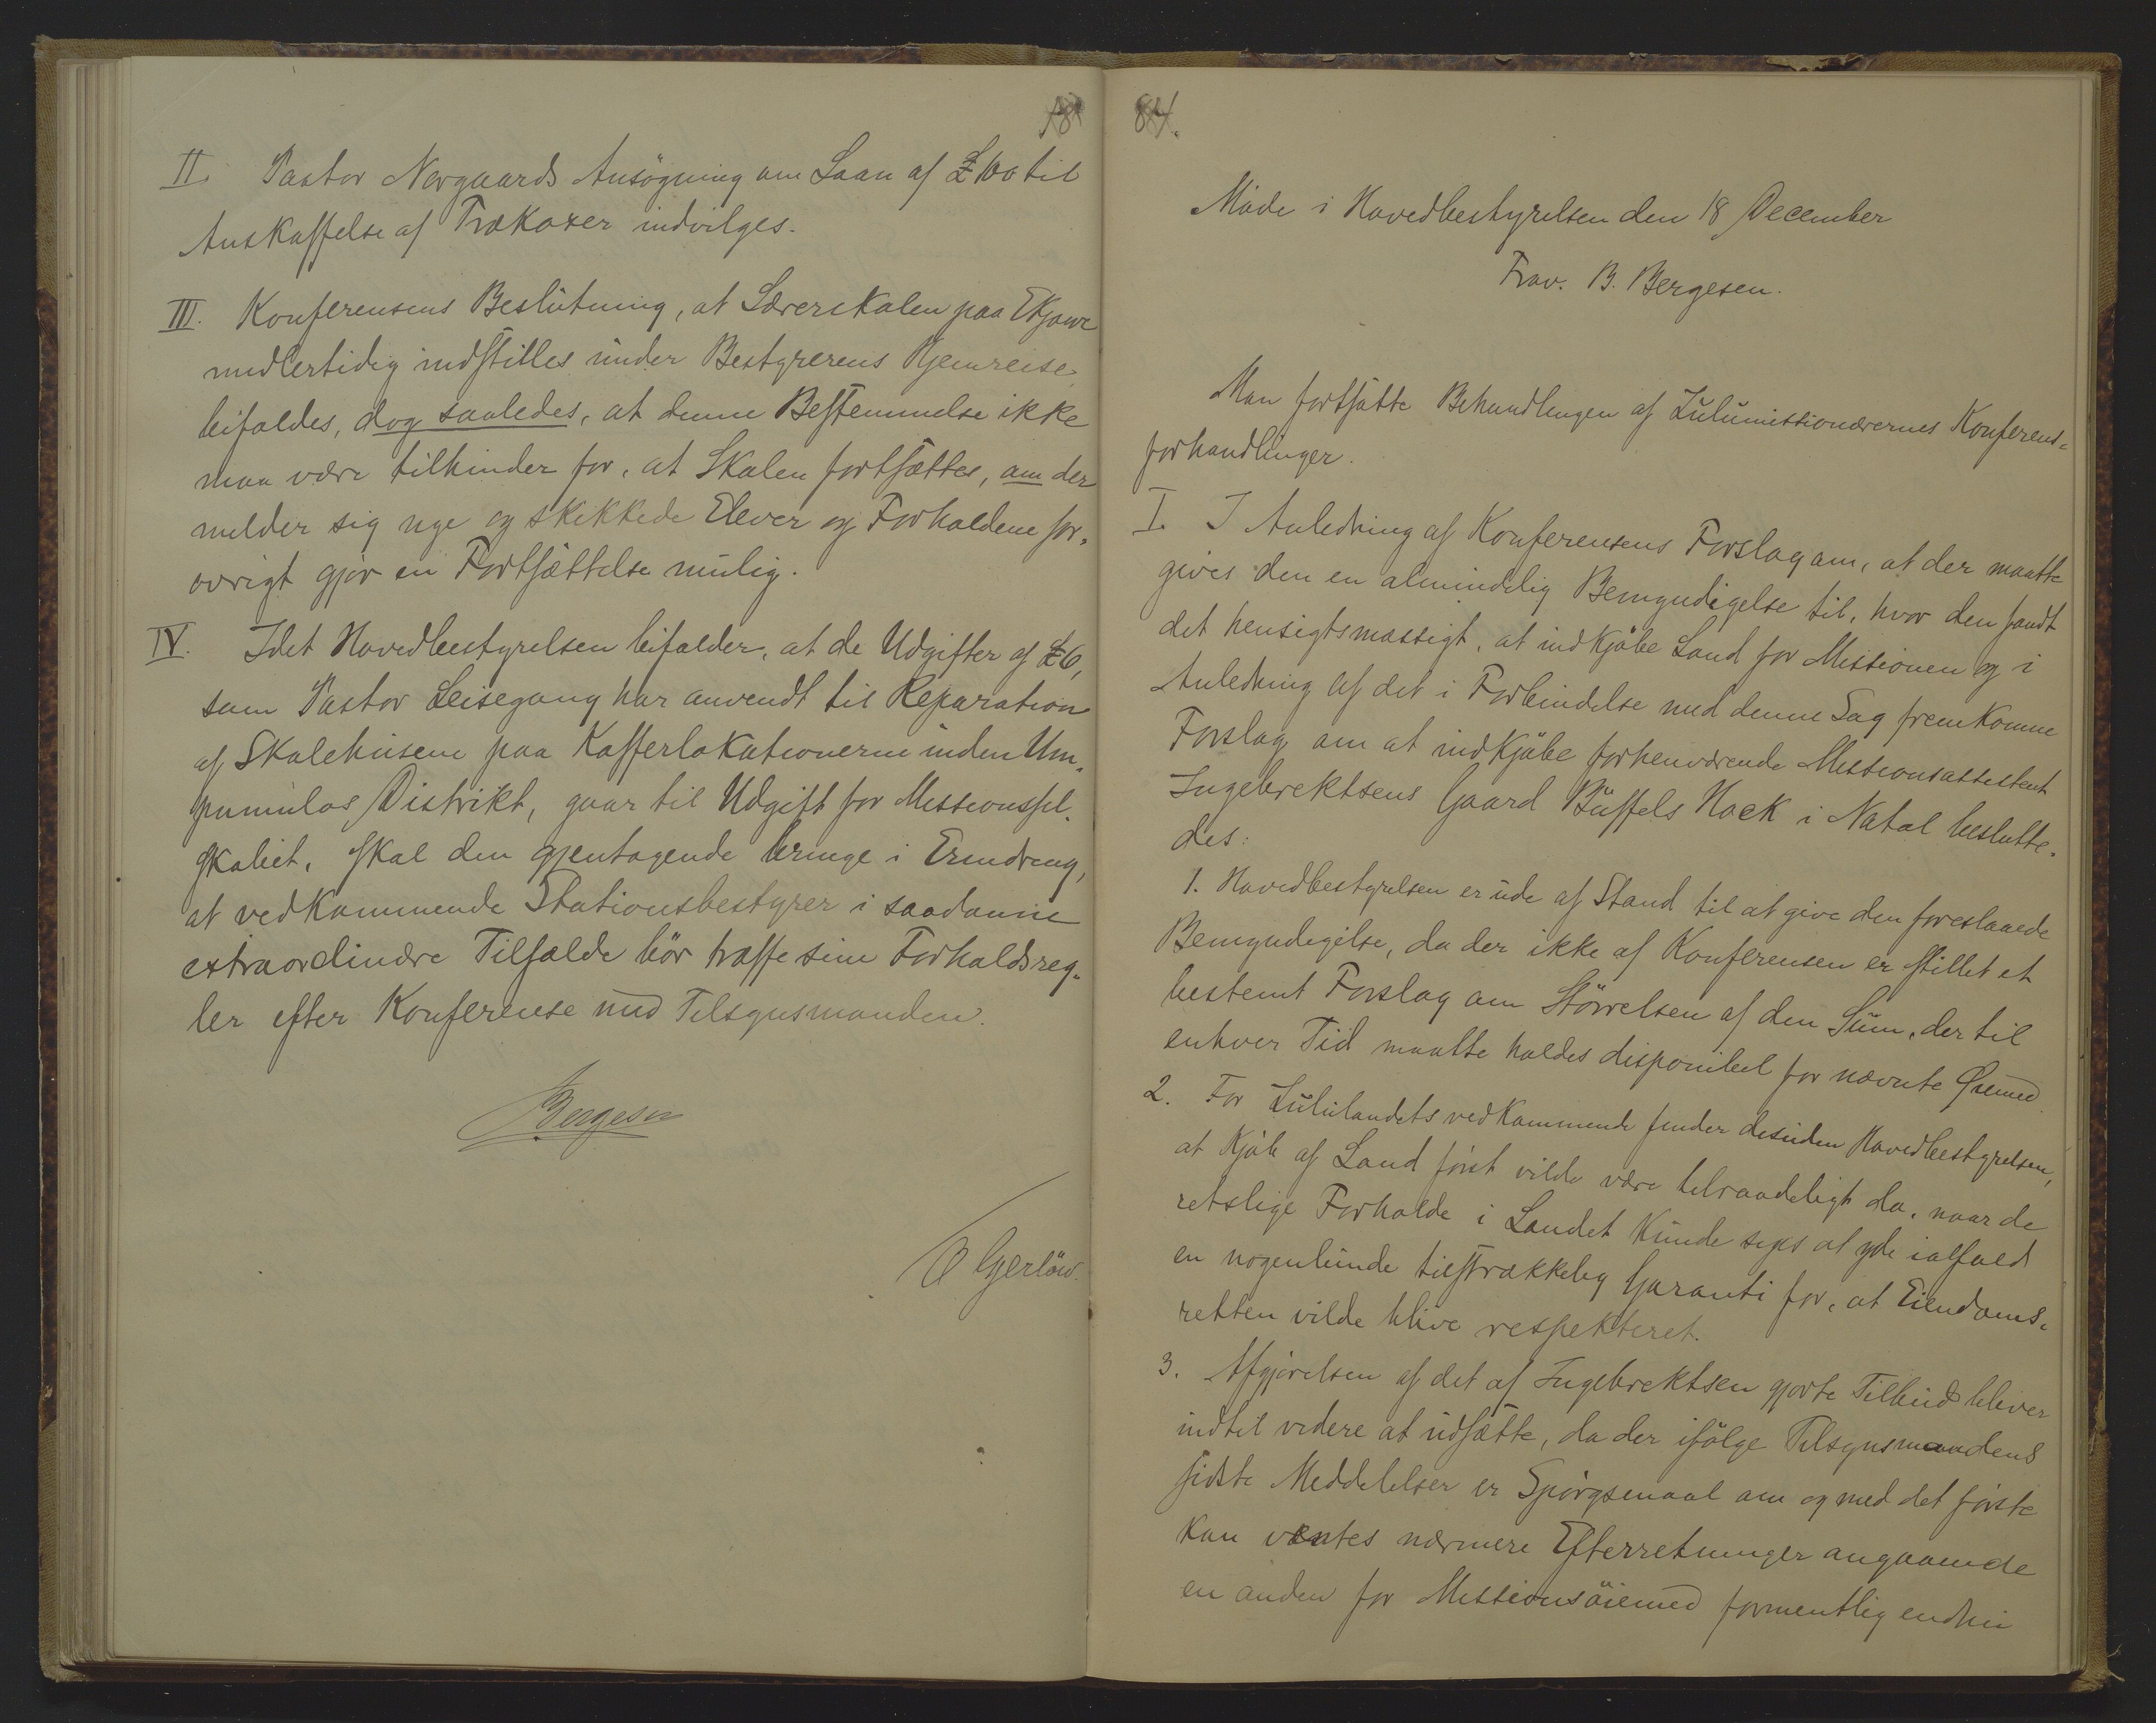 II. Pastor Norgaards Ansögning om Laan af £100 til
Anskaffelse af Trækoxer indvilges.
III. Konferensens Beslutning, at Lærerskolen paa Ekjowe
midlertidig indstilles under Bestyrerens Hjemreise,
bifaldes, dog saaledes, at denne Bestemmelse ikke
maa være tilhinder for, at Skolen fortsættes, om der
melder sig nye og skikkede Elever og Forholdene for-
øvrigt gjør en Fortsættelse mulig.
IV. Idet Hovedbestyrelsen bifalder, at de Udgifter af £6,
som Pastor Leisegang har anvendt til Reparation
af Skolehusene paa Kafferlokationerne inden Um-
pumulos Distrikt, gaar til Udgift for Missionssel-
skabet, skal den gjentagende bringe i Erindring,
at vedkommende Stationsbestyrer i saadanne
extraordinære Tilfælde bör træffe sine Forholdsreg-
ler efter Konferense med Tilsynsmanden.
Bergesen
O Gjerlöw.
84.
Möde i Hovedbestyrelsen den 18 December
Frav. B. Bergesen.
Man fortsatte Behandlingen af Zulumissionærernes Konferens-
forhandlinger.
I. I Anledning af Konferensens Forslag om, at der maatte
gives den en almindelig Bemyndigelse til, hvor den fandt
det hensigtsmæssigt, at indkjöbe Land for Missionen og i
Anledning af det i Forbindelse med denne Sag fremkomne
Forslag om at indkjöbe forhenværende Missionsassistent
Ingebrektsens Gaard Büffels Hoek i Natal beslutte-
des:
1. Hovedbestyrelsen er ude af Stand til at give den foreslaaede
Bemyndigelse, da der ikke af Konferensen er stillet et
bestemt Forslag om Störrelsen af den Sum, der til
enhver Tid maatte holdes disponibel for nævnte Øiemed.
2. For Zululandets vedkommende finder desuden Hovedbestyrelsen,
at Kjöb af Land först vilde være tilraadeligt da, naar de
retslige Forholde i Landet kunde siges at yde ialfald
en nogenlunde tilstrækkelig Garanti for, at Eiendoms-
retten vilde blive respekteret.
3. Afgjörelsen af det af Ingebrektsen gjorte Tilbud bliver
indtil videre at udsætte, da der ifölge Tilsynsmandens
sidste Meddelelser er Spörgsmaal om og med det förste
kan ventes nærmere Efterretninger angaaende
en anden for Missionsöiemed formentlig endnu